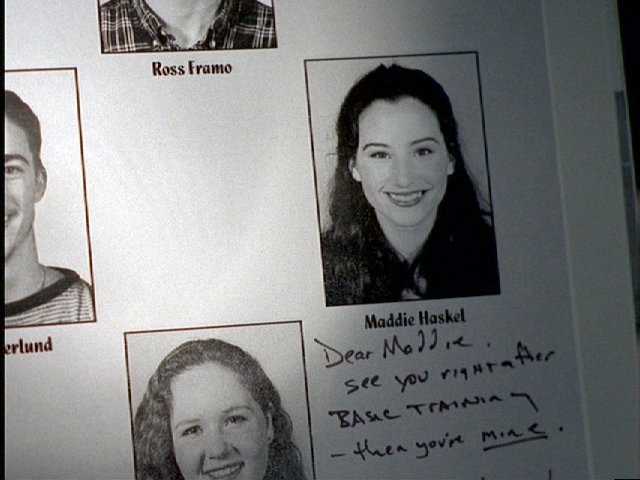 Ross Framo
Maddie Haskel
erlund
Dear Maddie.
see you right after
BASIC TRAINING
- then you're mine.